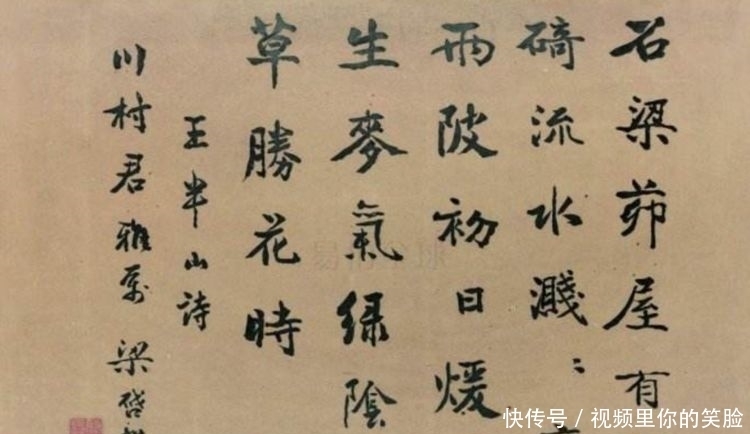 石梁茆屋有
碕流水濺〻
兩陂初日煖
生麥氣綠陰
草勝花時
王半山詩
川村君雅屬 梁啓
快传号/视频里你的笑脸